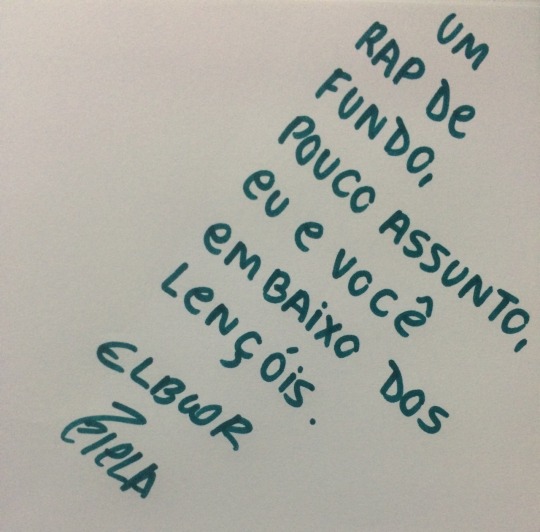 UM
RAP De
FUNDO,
POUCO ASSUNTO,
eU e VOCÊ
emBAiXO DOS
LeNÇÓiS.
ELBWOR